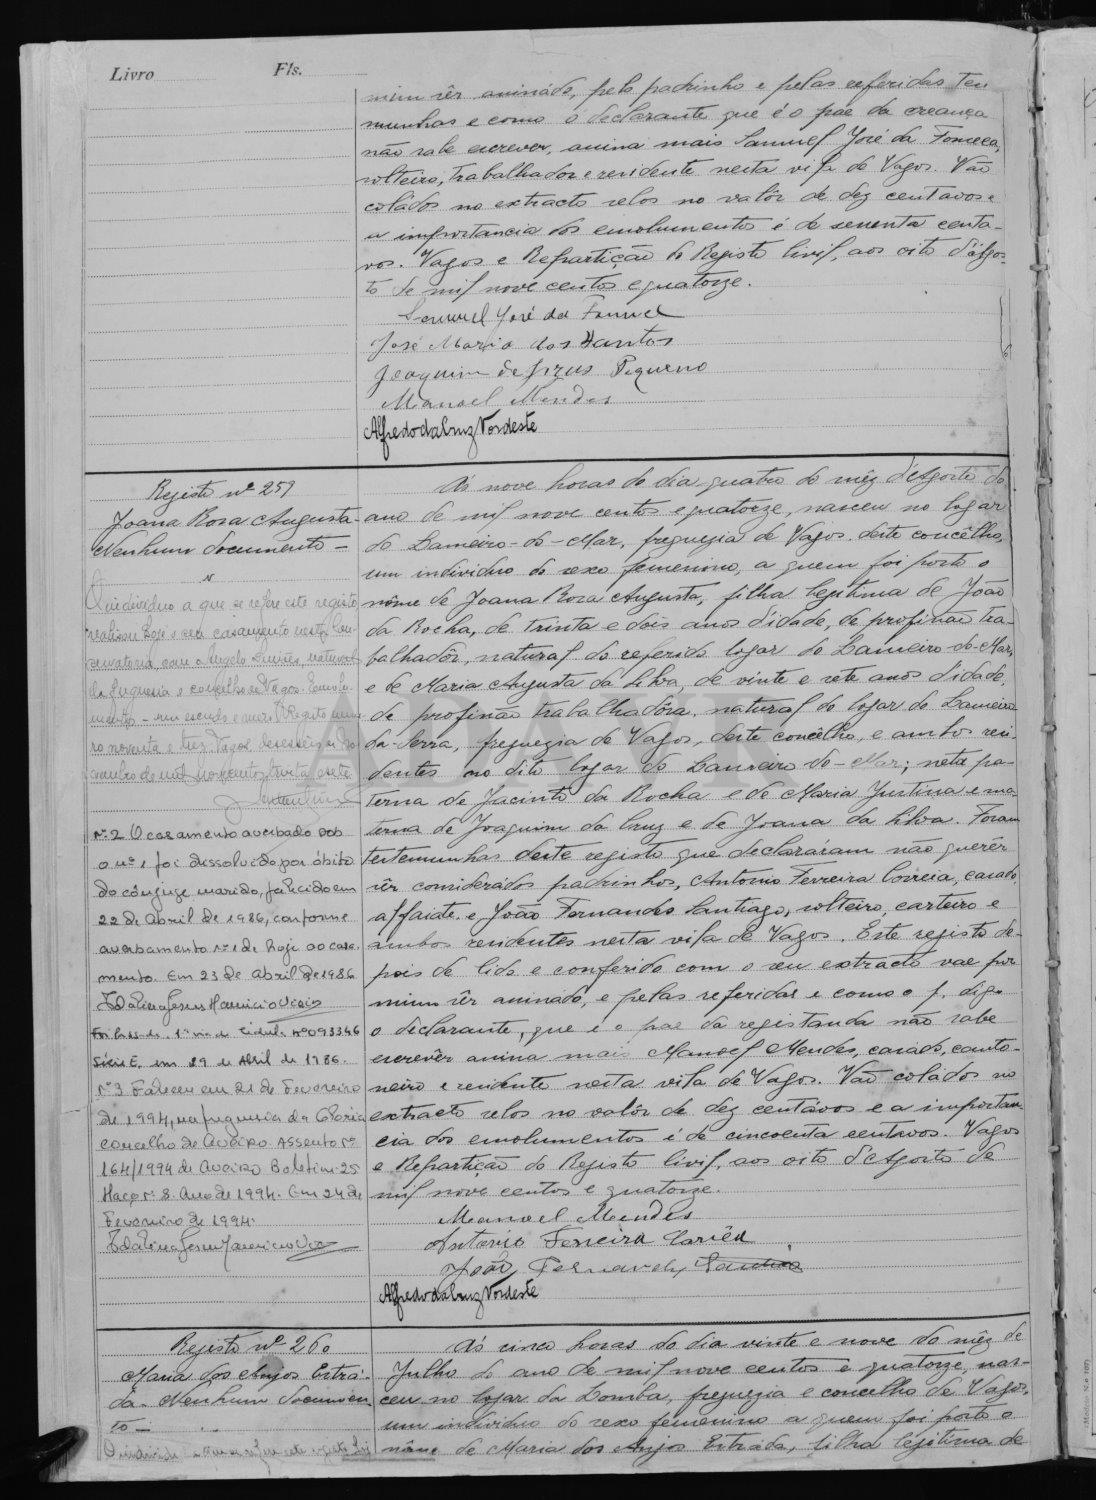 Livro Fls.
mim sêr assinado, pelo padrinho e pelas referidas teste
munhas e como o declarante que é o pae da creança
não sabe escrever, assina mais Samuel José da Fonseca,
solteiro, trabalhador e residente nesta vila de Vagos. Vão
coládos no extracto selos no valôr de dez centavos e
a importancia dos emolumentos é de sessenta centa-
vos. Vagos e Repartição do Registo Civil, aos oito d'Agos-
to de mil nove centos e quatorze.
Samuel José da Fonseca
José Maria dos Santos
Joaquim de Jezus Pequeno
Manoel Mendes
Alfredo da Cruz Nordeste
Registo nº 259
Joana Rosa Augusta-
Nenhum documento-
O individuo a que se refere este registo
realisou hoje o seu casamento nesta Con-
servatoria com Angelo Simões, natural
da freguesia e concelho de Vagos. Emolu-
mentos - um escudo e meio. Registo nume-
ro noventa e trez. Vagos, desesseis de De-
zembro de mil novecentos trinta e sete
nº 2 O casamento averbado sob
o nº 1 foi dissolvido por óbito
do cônjuge marido, falecido em
22 de Abril de 1986, conforme
averbamento nº 1 de hoje ao casa-
mento. Em 23 de Abril de 1986
Foi passada 1ª via de Cédula nº 093346
Série E, em 29 de Abril de 1986.
nº 3 Faleceu em 21 de Fevereiro
de 1994, na freguesia da Glória
concelho de Aveiro. Assento nº
164/1994 de Aveiro Boletim 25
Maço nº 8. Ano de 1994. Em 24 de
Fevereiro de 1994.
Ás nove horas do dia quatro do mêz d'Agosto do
ano de mil nove centos e quatorze, nasceu no logar
do Lameiro-do-Mar, freguezia de Vagos, deste concêlho,
um individuo do sexo femenino, a quem foi posto o
nôme de Joana Rosa Augusta, filha legitima de João
da Rocha, de trinta e dois anos d'idade, de profissão tra-
balhadôr, natural do referido logar do Lameiro-do-Mar,
e de Maria Augusta da Silva, de vinte e sete anos d'idade,
de profissão trabalhadôra, natural do logar do Lameiro
da-Serra, freguezia de Vagos, deste concelho, e ambos resi-
dentes no dito logar do Lameiro-do-Mar; neta pa-
terna de Jacinto da Rocha e de Maria Justina e ma-
terna de Joaquim da Cruz e de Joana da Silva. Foram
testemunhas deste registo que declararam não querêr
sêr considerádos padrinhos, Antonio Ferreira Correia, casado,
alfaiate e João Fernandes Santiago, solteiro, carteiro e
ambos residentes nesta vila de Vagos. Este registo de-
pois de lido e conferido com o seu extracto vae por
mim sêr assinado, e pelas referidas e como o p. digo
o declarante, que é o pae da registanda não sabe
escrevêr assina mais Manoel Mendes, casado, canto-
neiro e residente nesta vila de Vagos. Vão coládos no
extracto selos no valôr de dez centávos e a importan
cia dos emolumentos é de cincoenta centavos. Vagos
e Repartição do Registo Civil, aos oito d'Agosto de
mil nove centos e quatorze.
Manoel Mendes
Antonio Ferreira Corrêa
João Fernandes Santiago
Alfredo da Cruz Nordeste
Registo nº 260
Maria dos Anjos Estrá-
da- Nenhum documen
to-
O individuo a que se refere este registo
Ás cinco horas do dia vinte e nove do mêz de
Julho do ano de mil nove centos e quatorze, nas-
ceu no logar da Lomba, freguezia e concelho de Vagos,
um individuo do sexo femenino a quem foi posto o
nôme de Maria dos Anjos Estráda, filha legitima de